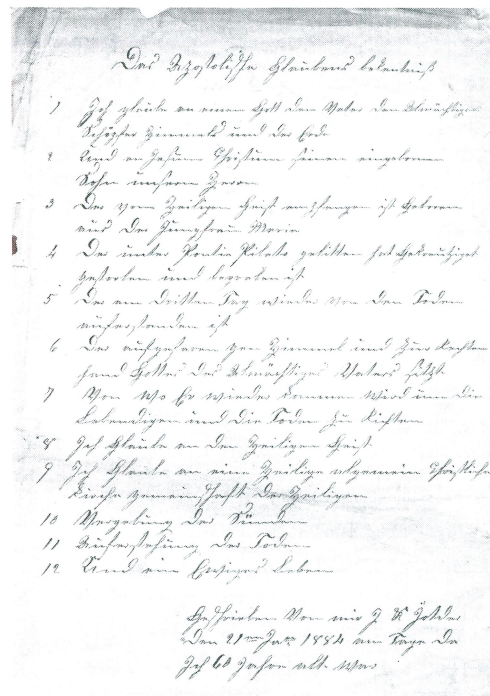 Das Apostolische Glaubens bekentniß
1 Ich glaube an einem Gott dem Vater den Almächtigen
Schöpfer Himmels und der Erde
2 Und an Jesum Christum seinen eingebornen
Sohn unsern Herrn
3 Der vom Heiligen Geist empfangen ist Geboren
aus der Jungfrau Maria
4 Der unter Pontio Pilato gelitten hat Gekreutziget
gestorben und begraben ist
5 Der am Dritten Tag wieder von den Toden
auferstanden ist
6 Der aufgefaren gen Himmel und Zur Rechten
hand Gottes des Almächtiges Vaters sitzt
7 Von wo Er wieder kommen wird um die
Lebendigen und die Toden zu Richten
8 Ich Glaube an den Heiligen Geist
9 Ich Glaube an eine Heilige algemein Christliche
Kirche gemeinschaft der Heiligen
10 Vergebung der Sünden
11 Auferstehung der Toden
12 Und ein Ewiges Leben
Geschrieben Von mir J
den 21ten Ja 1884 am Tage da
Ich 60 Jahre alt war